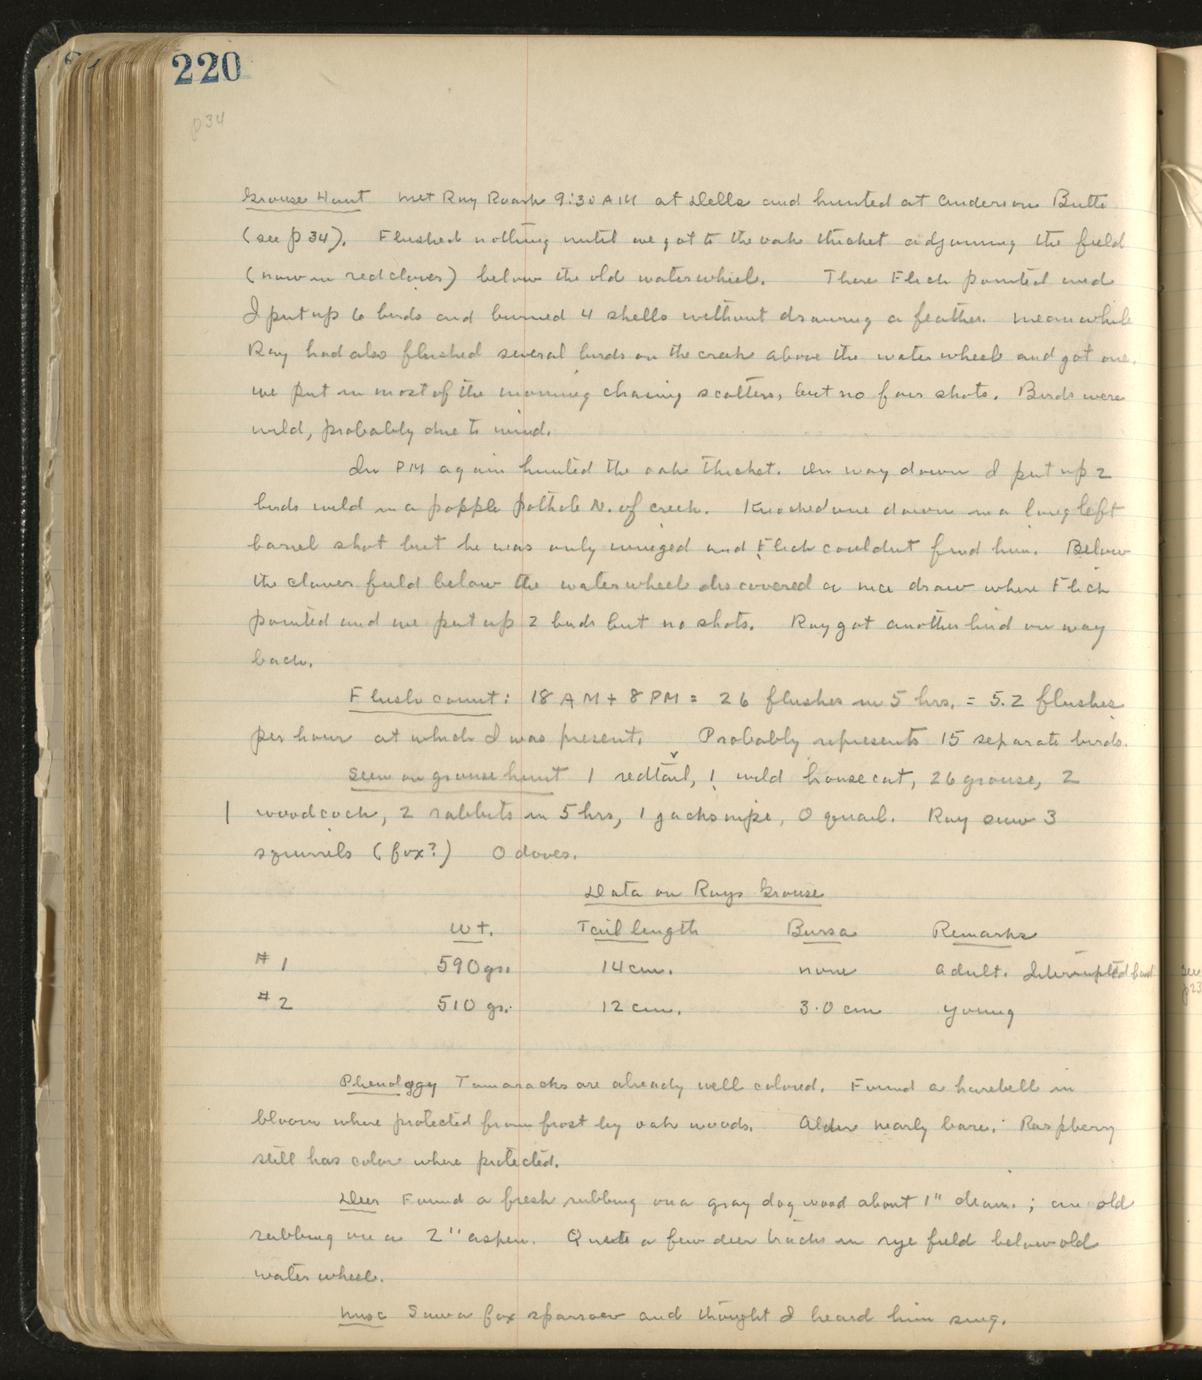 220
p 34
Grouse Hunt Met Ray Roark 9:30 AM at Dells and hunted at Anderson Butte
(see p 34). Flushed nothing until we got to the oak thicket adjoining the field
(now in red clover) below the old waterwheel. There Flick pointed and
I put up 6 birds and burned 4 shells without drawing a feather. Meanwhile
Ray had also flushed several birds on the creek above the water wheel and got one.
We put in most of the morning chasing scatters, but no fair shots. Birds were
wild, probably due to wind.
In PM again hunted the oak thicket. On way down I put up 2
birds wild in a popple pothole N. of creek. Knocked one down in a long left
barrel shot but he was only winged and Flick couldnt find him. Below
the clover field below the waterwheel discovered a nice draw where Flick
pointed and we put up 2 birds but no shots. Ray got another bird on way
back.
Flush count: 18 AM + 8 PM = 26 flushes in 5 hrs. = 5.2 flushes
per hour at which I was present. Probably represents 15 separate birds.
Seen on grouse hunt 1 redtail, 1 wild housecat, 26 grouse, 2
| woodcock, 2 rabbits in 5 hrs, 1 jacksnipe, 0 quail. Ray saw 3
squirrels (fox?) 0 doves.
Data on Rays Grouse
Wt. Tail length Bursa Remarks
#1 590 gr. 14 cm. none adult. Interrupted band see
#2 510 gr. 12 cm. 3.0 cm young p23
Phenology Tamaracks are already well colored. Found a harebell in
bloom where protected from frost by oak woods. Alder nearly bare. Raspberry
still has color where protected.
Deer Found a fresh rubbing on a gray dogwood about 1" diam.; an old
rubbing on a 2" aspen. Quite a few deer tracks in rye field below old
water wheel.
Misc Saw a fox sparrow and thought I heard him sing.